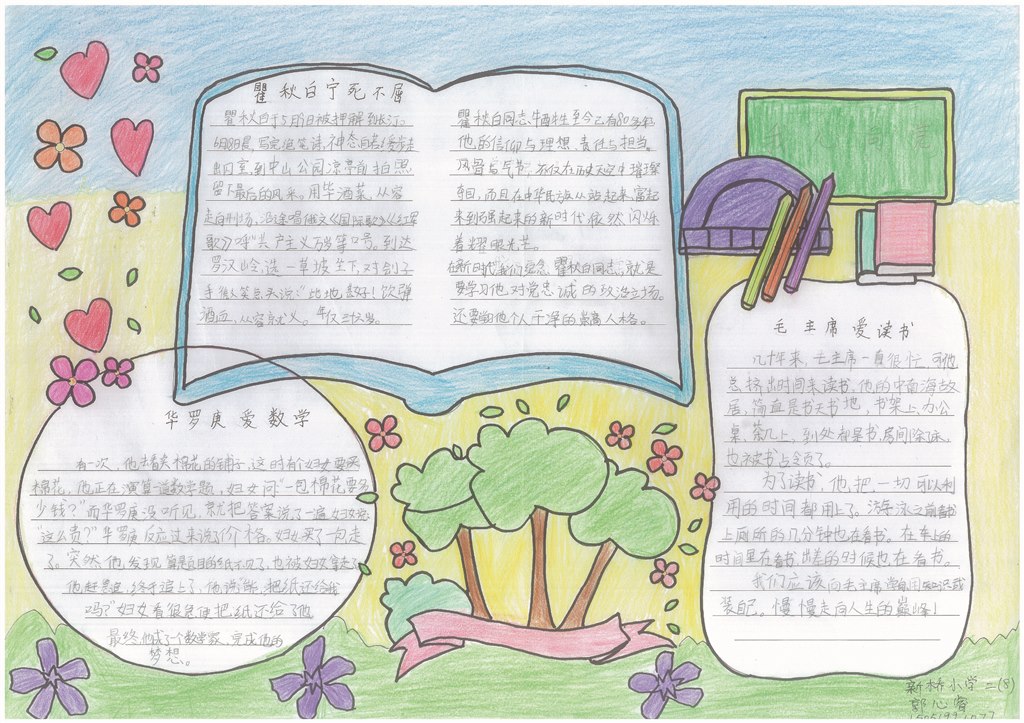 瞿秋白宁死不屈
瞿秋白于5月9日被押解到长汀。
的18日晨,写完绝笔诗,神态自若,缓步走
出门室,到中山公园凉亭前拍照
留下最后的风采。用毕酒菜,从容
走向刑场,沿途唱俄文《国际歌》《红军
歌》呼"共产主义万岁等口号。到达
罗汉岭,选一草坡坐下,对刽子
手微笑点头说:"此地甚好!饮弹
洒血,从容就义。年仅三十六岁。
瞿秋白同志牺牲至今已有80多年
他的信仰与理想,责任与担当。
风骨与气节,不仅在历史天空中璀璨
夺目,而且在中华民族从站起来,富起
来到强起来的新时代依然闪烁
着耀眼光芒。
在新时代我们纪念瞿秋白同志,就是
要学习他对党忠诚的政治立场。
还要学他个人干净的崇高人格。
毛主席爱读书
几十年来,毛主席一直很忙,可他
总挤出时间来读书,他的中南海故
居,简直是书天书地,书架上,办公
桌,茶几上,到处都是书,房间除了床,
也被书占领了。
为了读书,他把一切可以利
用的时间都用上了。游泳之前
上厕所的几分钟也在看书。在车上的
时间里在看书,出差的时候也在看书。
我们应该向毛主席学自用知识武
装自己。慢慢走向人生的巅峰!
华罗庚爱数学
有一次,他去看卖棉花的铺子,这时有个妇女要买
棉花,他正在演算一道数学题,妇女问"一包棉花要多
少钱?"而华罗庚没听见,就把答案说了一遍,妇女说
"这么贵?"华罗庚反应过来说了价格。妇女买了一包走
了。突然他发现算题目的纸不见了,也被妇女拿走了
他赶忙追,终于追上了,他说:"能把纸还给我
吗?"妇女看很急便把纸还给了他
最终他成了个数学家,完成他的
梦想。
新桥小学二(8)
郭心睿